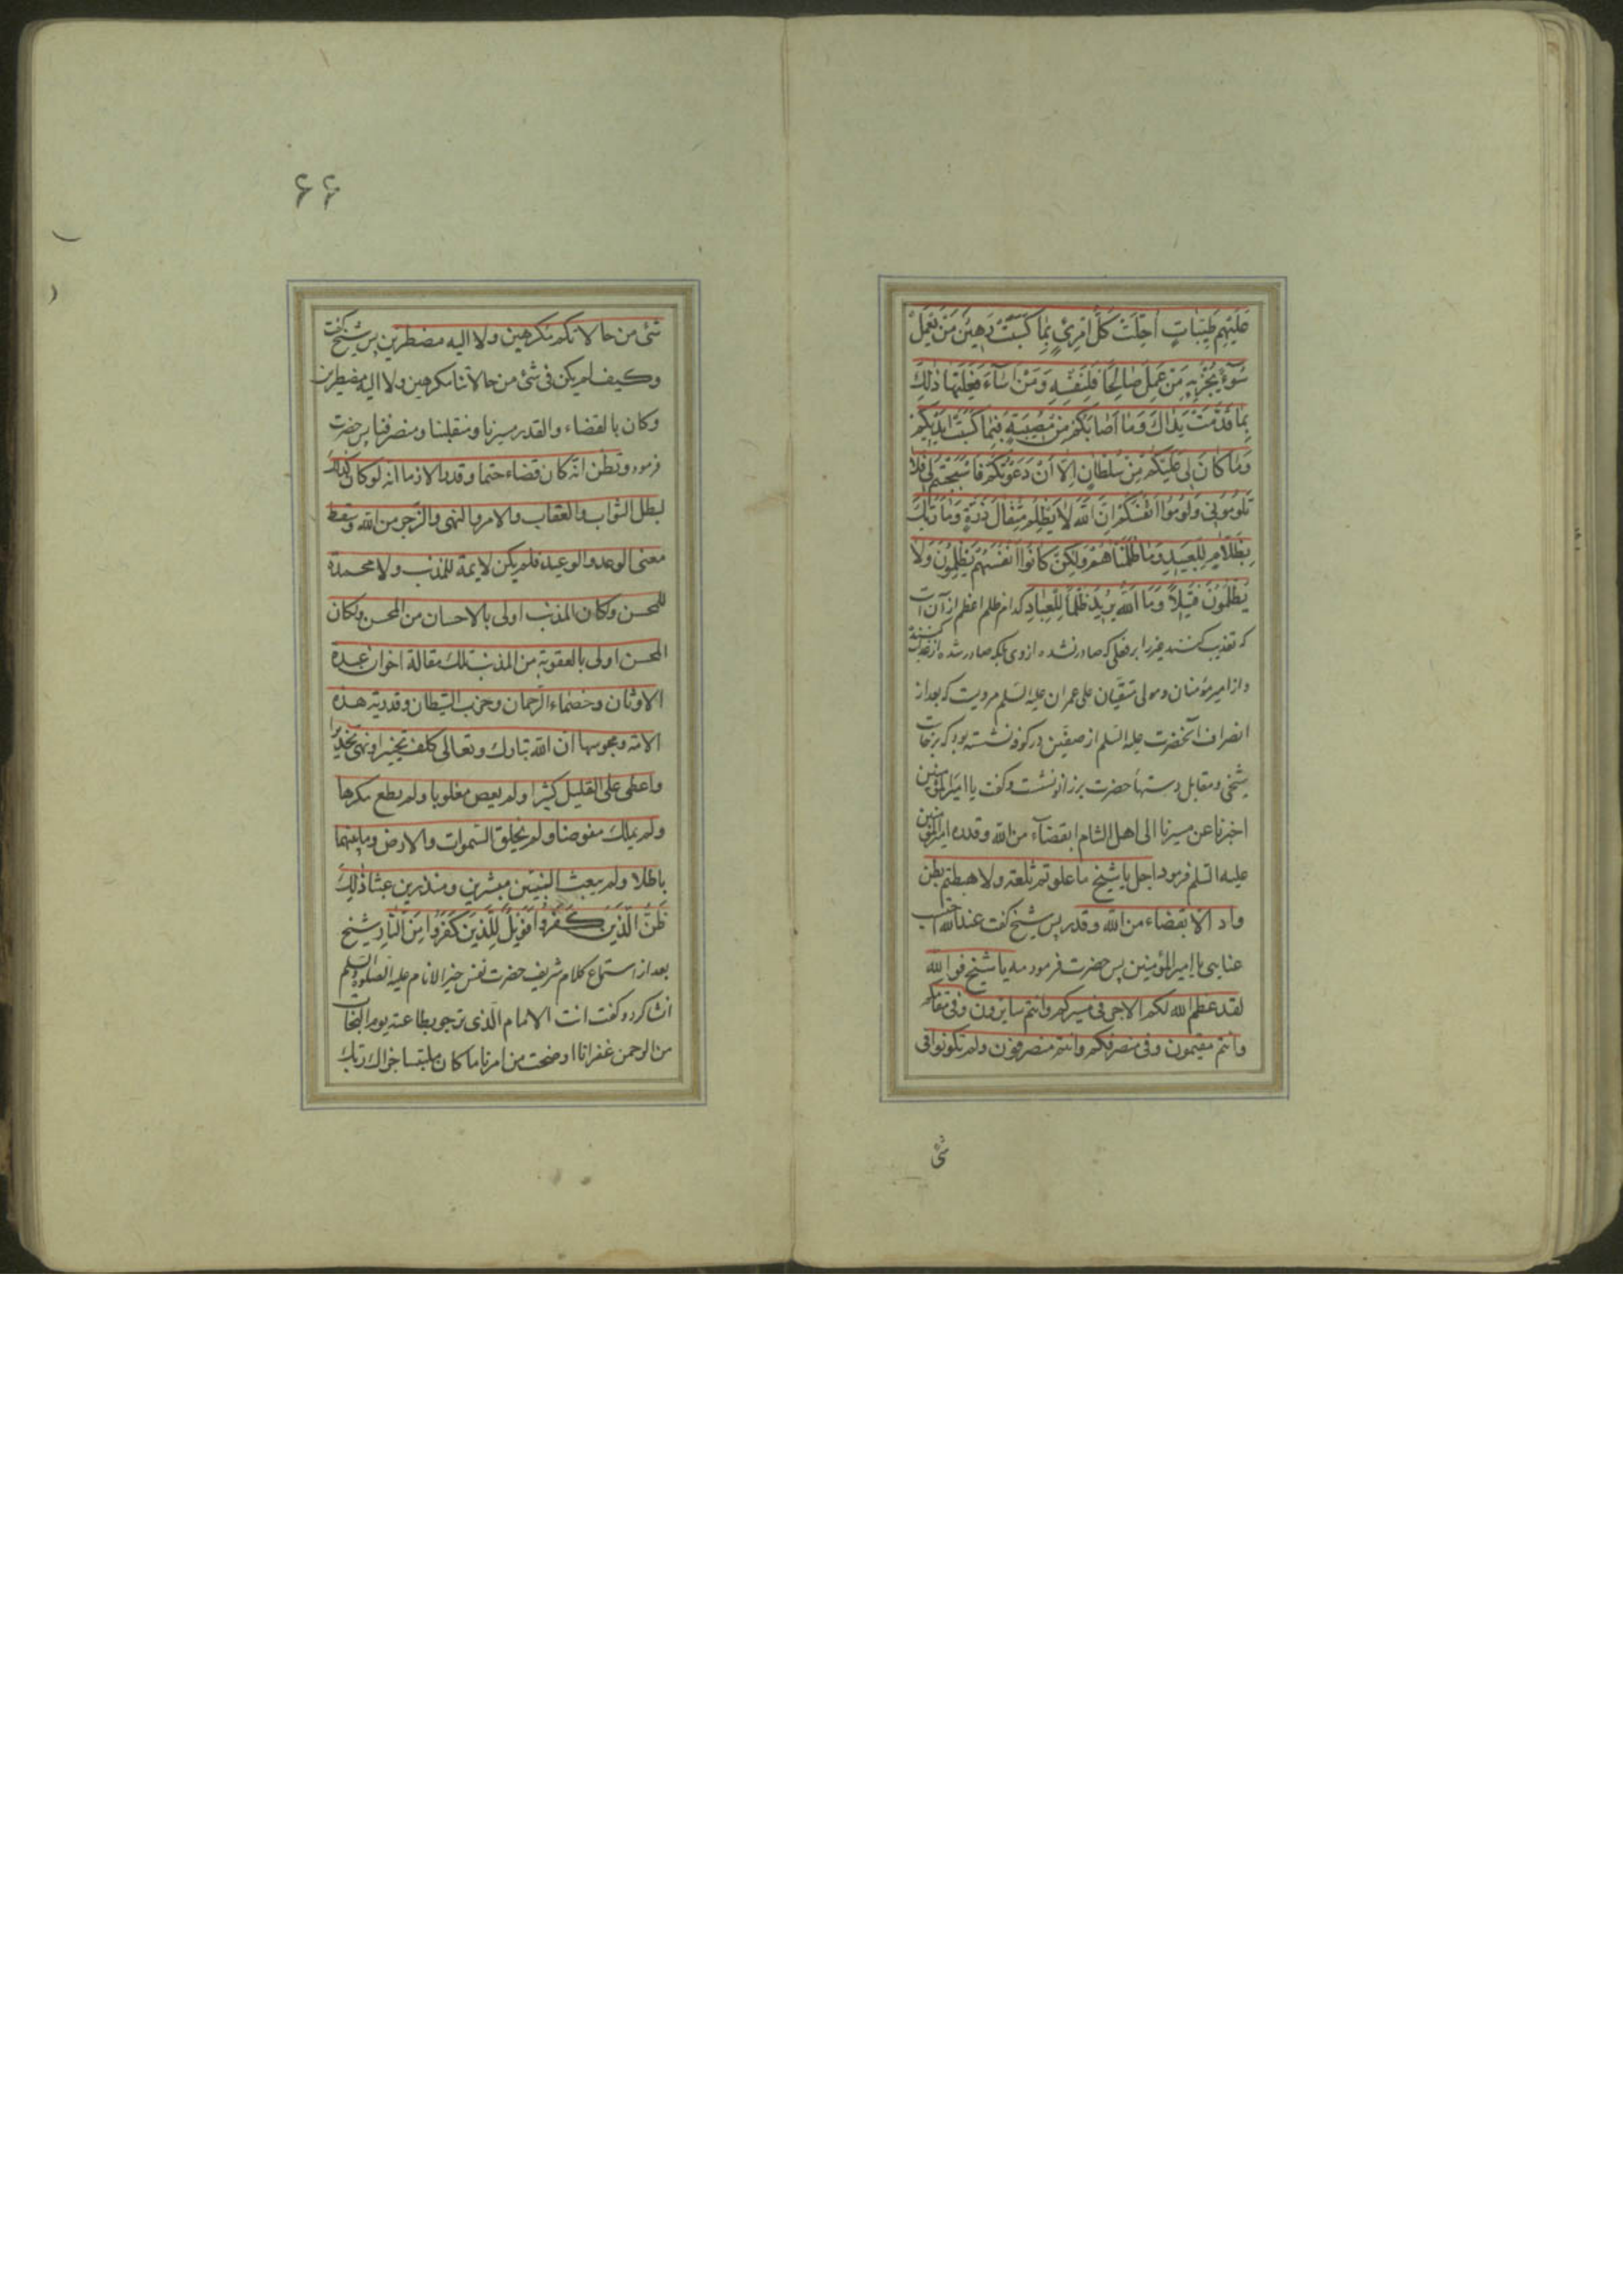 عَلَیْهِمْ طَیِّبَاتٍ اُحِلَّتْ کُلُّ امْرِئٍ بِمَا کَسَبَتْ رَهِینٌ مَنْ یَعْمَلْ
سُوءً یُجْزَ بِهِ مَنْ عَمِلَ صَالِحًا فَلِنَفْسِهِ وَمَنْ اَسَاءَ فَعَلَیْهَا ذٰلِکَ
بِمَا قَدَّمَتْ یَدَاکَ وَمَا اَصَابَکُمْ مِنْ مُصِیبَةٍ فَبِمَا کَسَبَتْ اَیْدِیکُمْ
وَمَا کَانَ لِیَ عَلَیْکُمْ مِنْ سُلْطَانٍ اِلَّا اَنْ دَعَوْتُکُمْ فَاسْتَجَبْتُمْ لِی فَلَا
تَلُومُونِی وَلُومُوا اَنْفُسَکُمْ اِنَّ اللّٰهَ لَا یَظْلِمُ مِثْقَالَ ذَرَّةٍ وَمَا رَبُّکَ
بِظَلَّامٍ لِلْعَبِیدِ وَمَا ظَلَمْنَاهُمْ وَلٰکِنْ کَانُوا اَنْفُسَهُمْ یَظْلِمُونَ وَلَا
یُظْلَمُونَ فَتِیلًا وَمَا اللّٰهُ یُرِیدُ ظُلْمًا لِلْعِبَادِ کدام ظلم اعظم از آن است
که تعذیب کنند غیر را بر فعلی که صادر نشده از وی بلکه صادر شده از تعذیب کننده
و از امیر مؤمنان و مولی متقیان علی عمران علیه السلم مرویست که بعد از
انصراف آنحضرت علیه السلم از صفین در کوفه نشسته بود که برخاست
شخی و مقابل دستها حضرت بر زانو نشست و کفت یا امیر المؤمنین
اخبرنا عن مسیرنا الی اهل الشام ابقضآء من الله وقدره امیر المؤمنین
علیه السلم فرمود اجل یا شیخ ما علوتم تلعة ولا هبطتم بطن
واد الا بقضاء من الله وقدر پس شیخ کفت عند الله احتسب
عنایی یا امیر المؤمنین پس حضرت فرمود مه یا شیخ فوالله
لقد عظم الله لکم الاجر فی مسیرکم وانتم سایرون وفی مقامکم
وانتم مقیمون وفی منصرفکم وانتم منصرفون ولم تکونوا فی
شئ
۶۶
شئ من حالاتکم مکرهین ولا الیه مضطرین پس شیخ کفت
وکیف لم یکن فی شئ من حالاتنا مکرهین ولا الیه مضطرین
وکان بالقضاء والقدر مسیرنا ومنقلبنا ومنصرفنا پس حضرت
فرمود وتظن انه کان قضاء حتما وقدرا لازما انه لو کان کذلک
لبطل الثواب والعقاب والامر والنهی والزجر من الله وسقط
معنی الوعد والوعید فلم یکن لایمة للمذنب ولا محمدة
للمحسن وکان المذنب اولی بالاحسان من المحسن ولکان
المحسن اولی بالعقوبة من المذنب تلک مقالة اخوان عبدة
الاوثان وخصماء الرحمان وحزب الشیطان وقدریة هذه
الامة ومجوسها ان الله تبارک وتعالی کلف تخییرا ونهی تحذیرا
واعطی علی القلیل کثیرا ولم یعص مغلوبا ولم یطع مکرها
ولم یملک مفوضا ولم یخلق السموات والارض وما بینهما
باطلا ولم یبعث النبیین مبشرین ومنذرین عبثا ذلک
ظَنُّ الَّذِینَ کَفَرُوا فَوَیْلٌ لِلَّذِینَ کَفَرُوا مِنَ النَّارِ شیخ
بعد از استماع کلام شریف حضرت نفس خیر الانام علیه الصلوة والسلم
انشا کرد و کفت انت الامام الذی نرجو بطاعته یوم النجات
من الرحمن غفرانا اوضحت من امرنا ما کان ملتبسا جزاک ربک